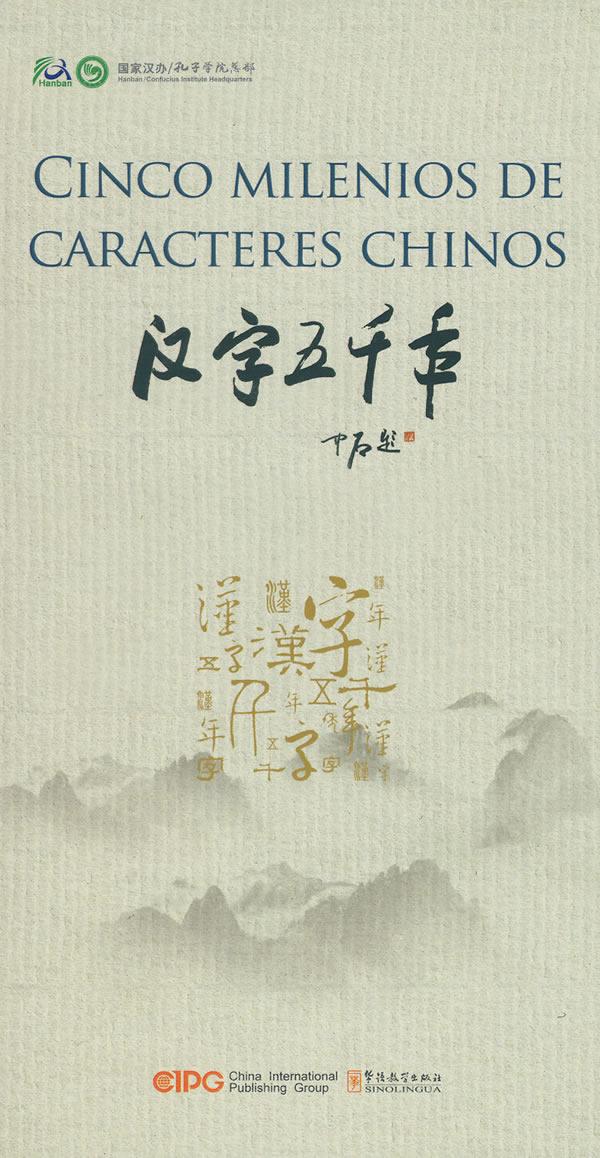 Hanban
国家汉办/孔子学院总部
Hanban/Confucius Institute Headquarters
CINCO MILENIOS DE
CARACTERES CHINOS
汉字五千年
中石题
漢 漢 字 漢
年
五 字 漢 漢
千 年 五 千
漢 年 漢
年 五 字 字 漢 字
字 千
CIPG China International
Publishing Group
华语教学出版社
SINOLINGUA